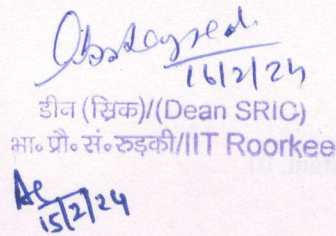 16/2/24
डीन (स्रिक)/(Dean SRIC)
भा॰ प्रौ॰ सं॰ रुड़की/IIT Roorkee
15/2/24